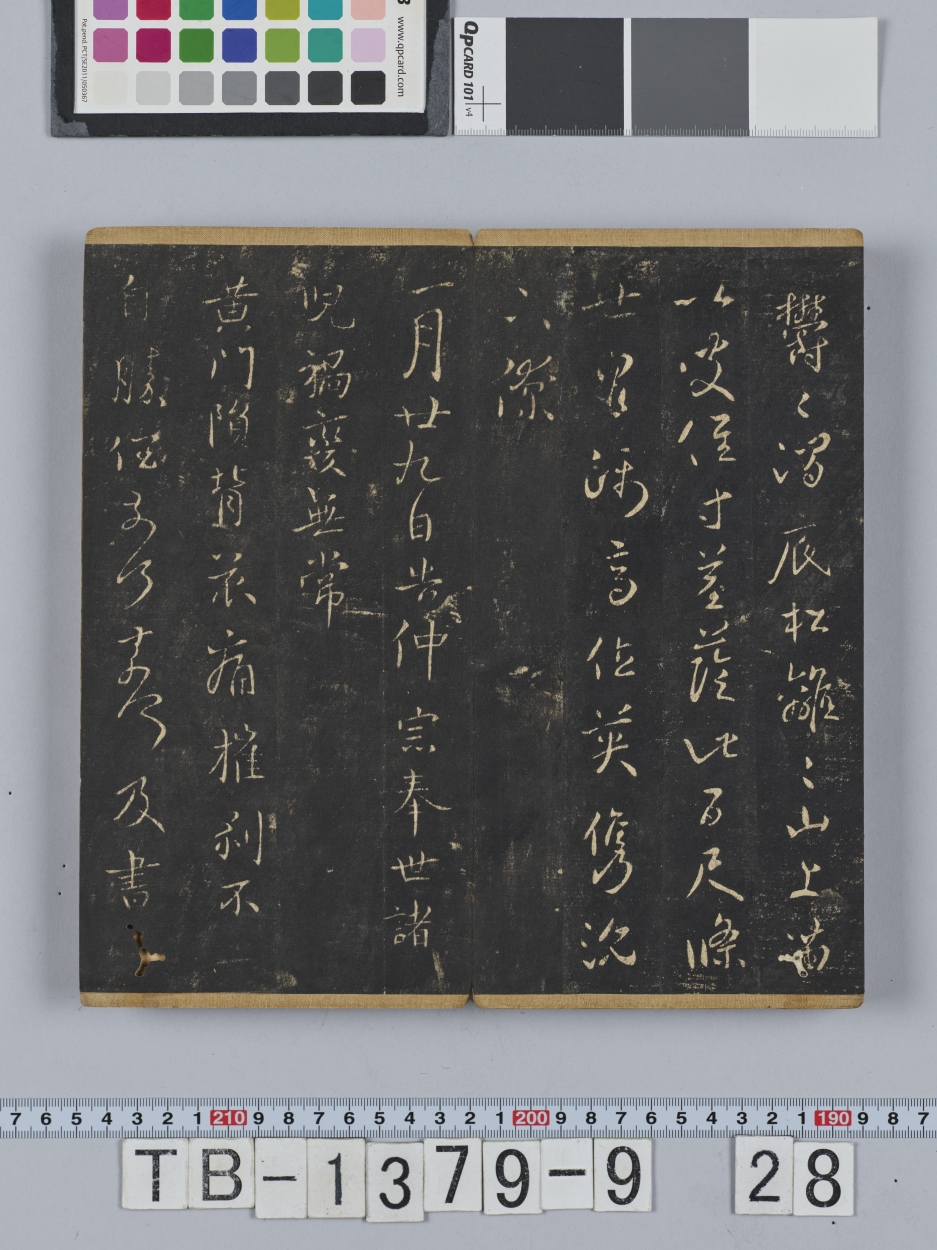 www.qpcard.com
Pat.pend. PCT/SE2011/050367
QPCARD 101 v4
鬱〻澗底松離〻山上苗
以彼徑寸莖蔭此百尺條
世冑躡高位英儁沈
下僚
一月廿九日告仲宗奉世諸
兒禍變無常
黃門隕背哀痛摧剥不
自勝奈何奈何及書
7 6 5 4 3 2 1 210 9 8 7 6 5 4 3 2 1 200 9 8 7 6 5 4 3 2 1 190 9 8 7
TB-1379-9 28